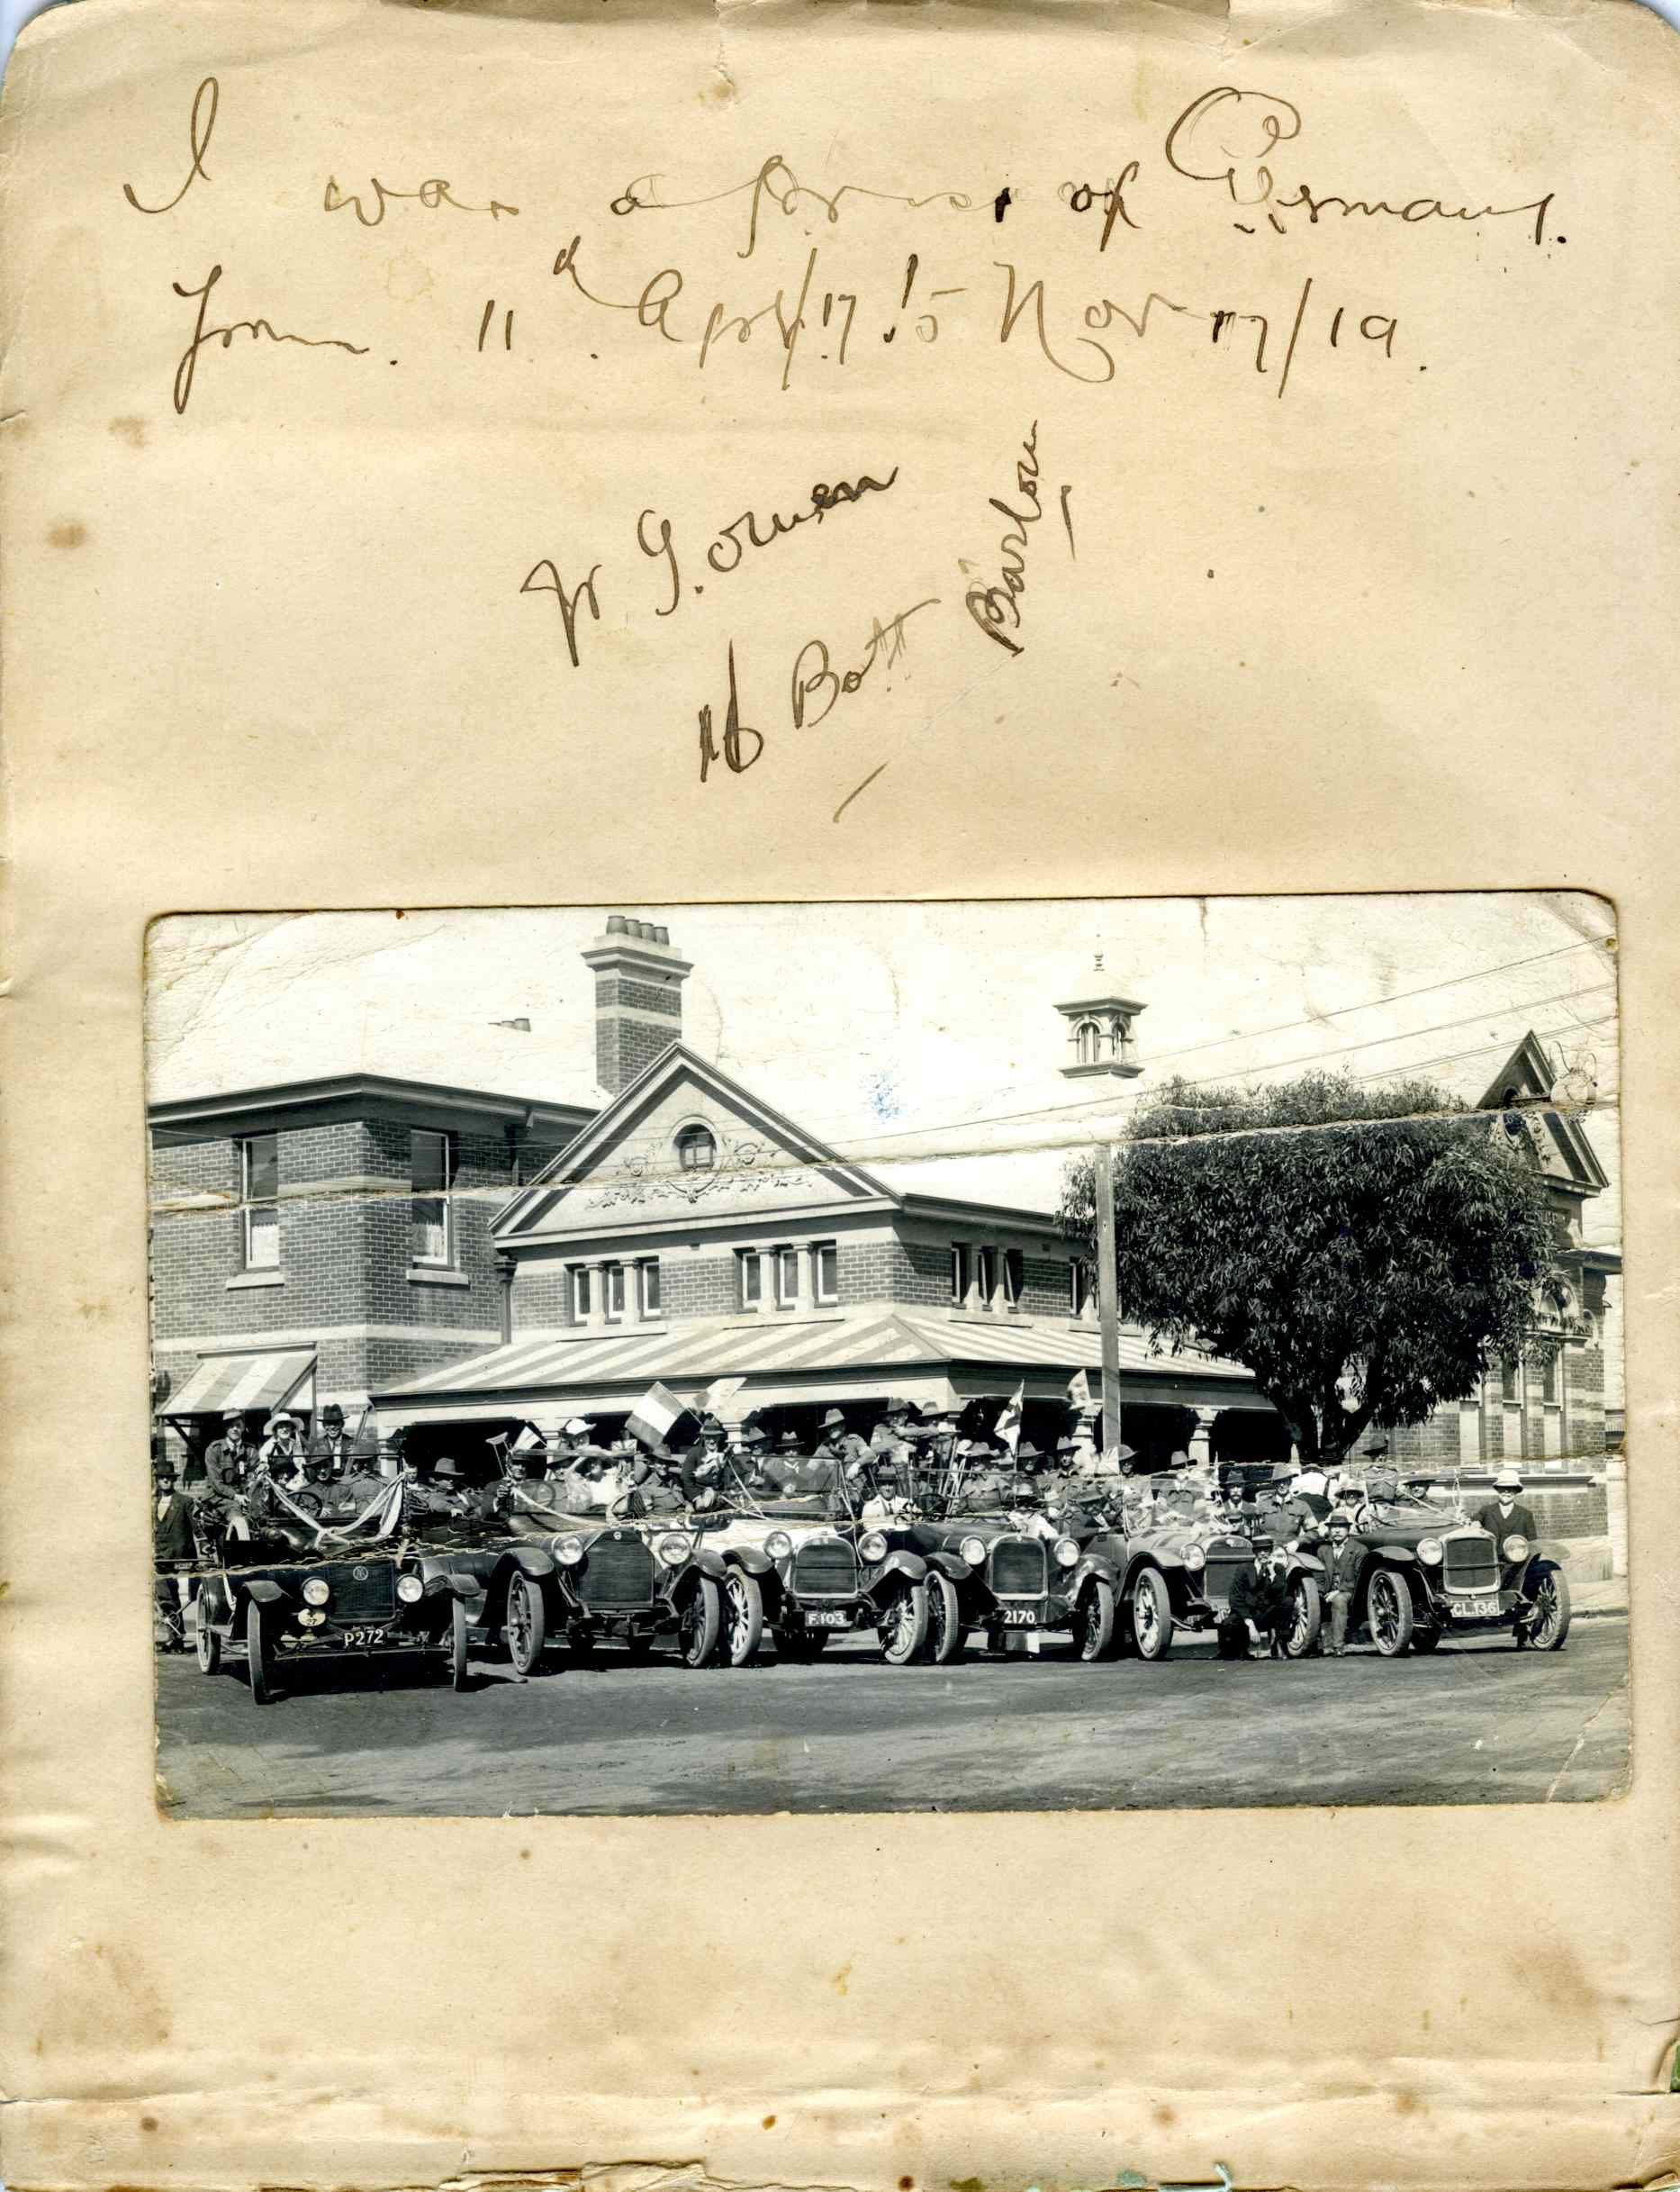 I was a of Germany.
from. 11th April/17 to Nov 17/19.
G. Owen
16 Batt
Barlow
P272
F.103
2170
CL.136